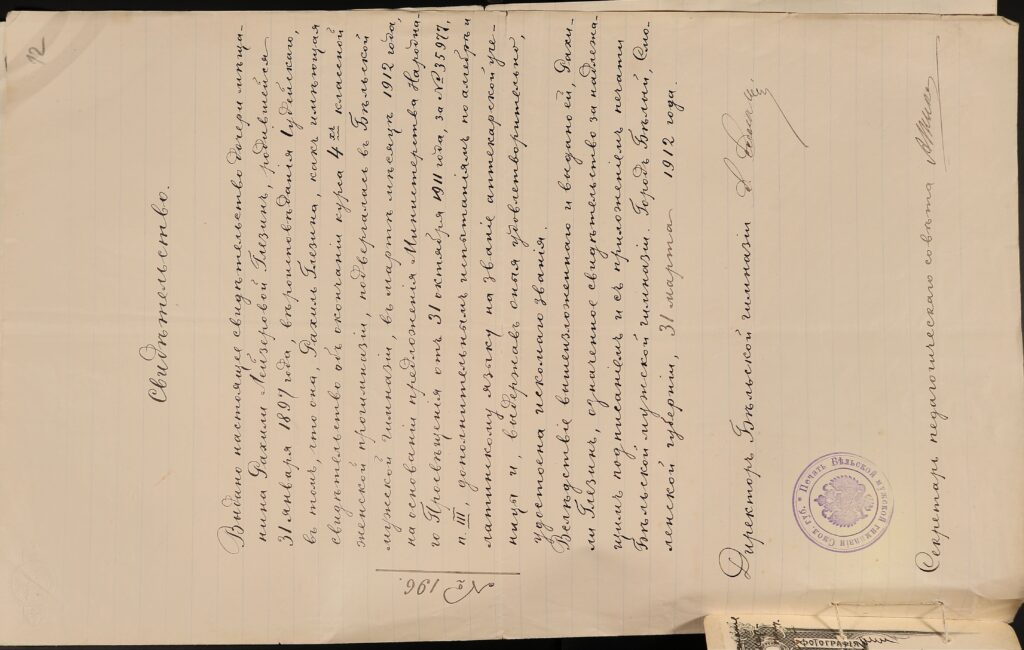 12
Свидѣтельство.
Выдано настоящее свидѣтельство дочери мѣща-
нина Рахили Лейзеровой Глезинъ, родившейся
31 января 1897 года, вѣроисповѣданія Іудейскаго,
въ томъ, что она, Рахиль Глезина, какъ имѣющая
свидѣтельство объ окончаніи курса 4хъ классной
женской прогимназіи, подвергалась въ Бѣльской
мужской гимназіи, въ мартѣ мѣсяцѣ 1912 года,
на основаніи предложенія Министерства Народна-
го Просвѣщенія отъ 31 октября 1911 года, за № 35977,
п. III, дополнительнымъ испытаніямъ по алгебрѣ и
латинскому языку на званіе аптекарской уче-
ницы и, выдержавъ оныя удовлетворительно,
удостоена искомаго званія.
Вслѣдствіе вышеизложеннаго и выдано ей, Рахи-
ли Глезинъ, означенное свидѣтельство за надлежа-
щимъ подписаніемъ и съ приложеніемъ печати
Бѣльской мужской гимназіи. Городъ Бѣлый, Смо-
ленской губерніи, 31 марта 1912 года.
№ 196.
Директоръ Бѣльской гимназіи
Печать Бѣльской мужской гимназіи Смол. губ.
Секретарь педагогическаго совѣта
ФОТОГРАФІЯ